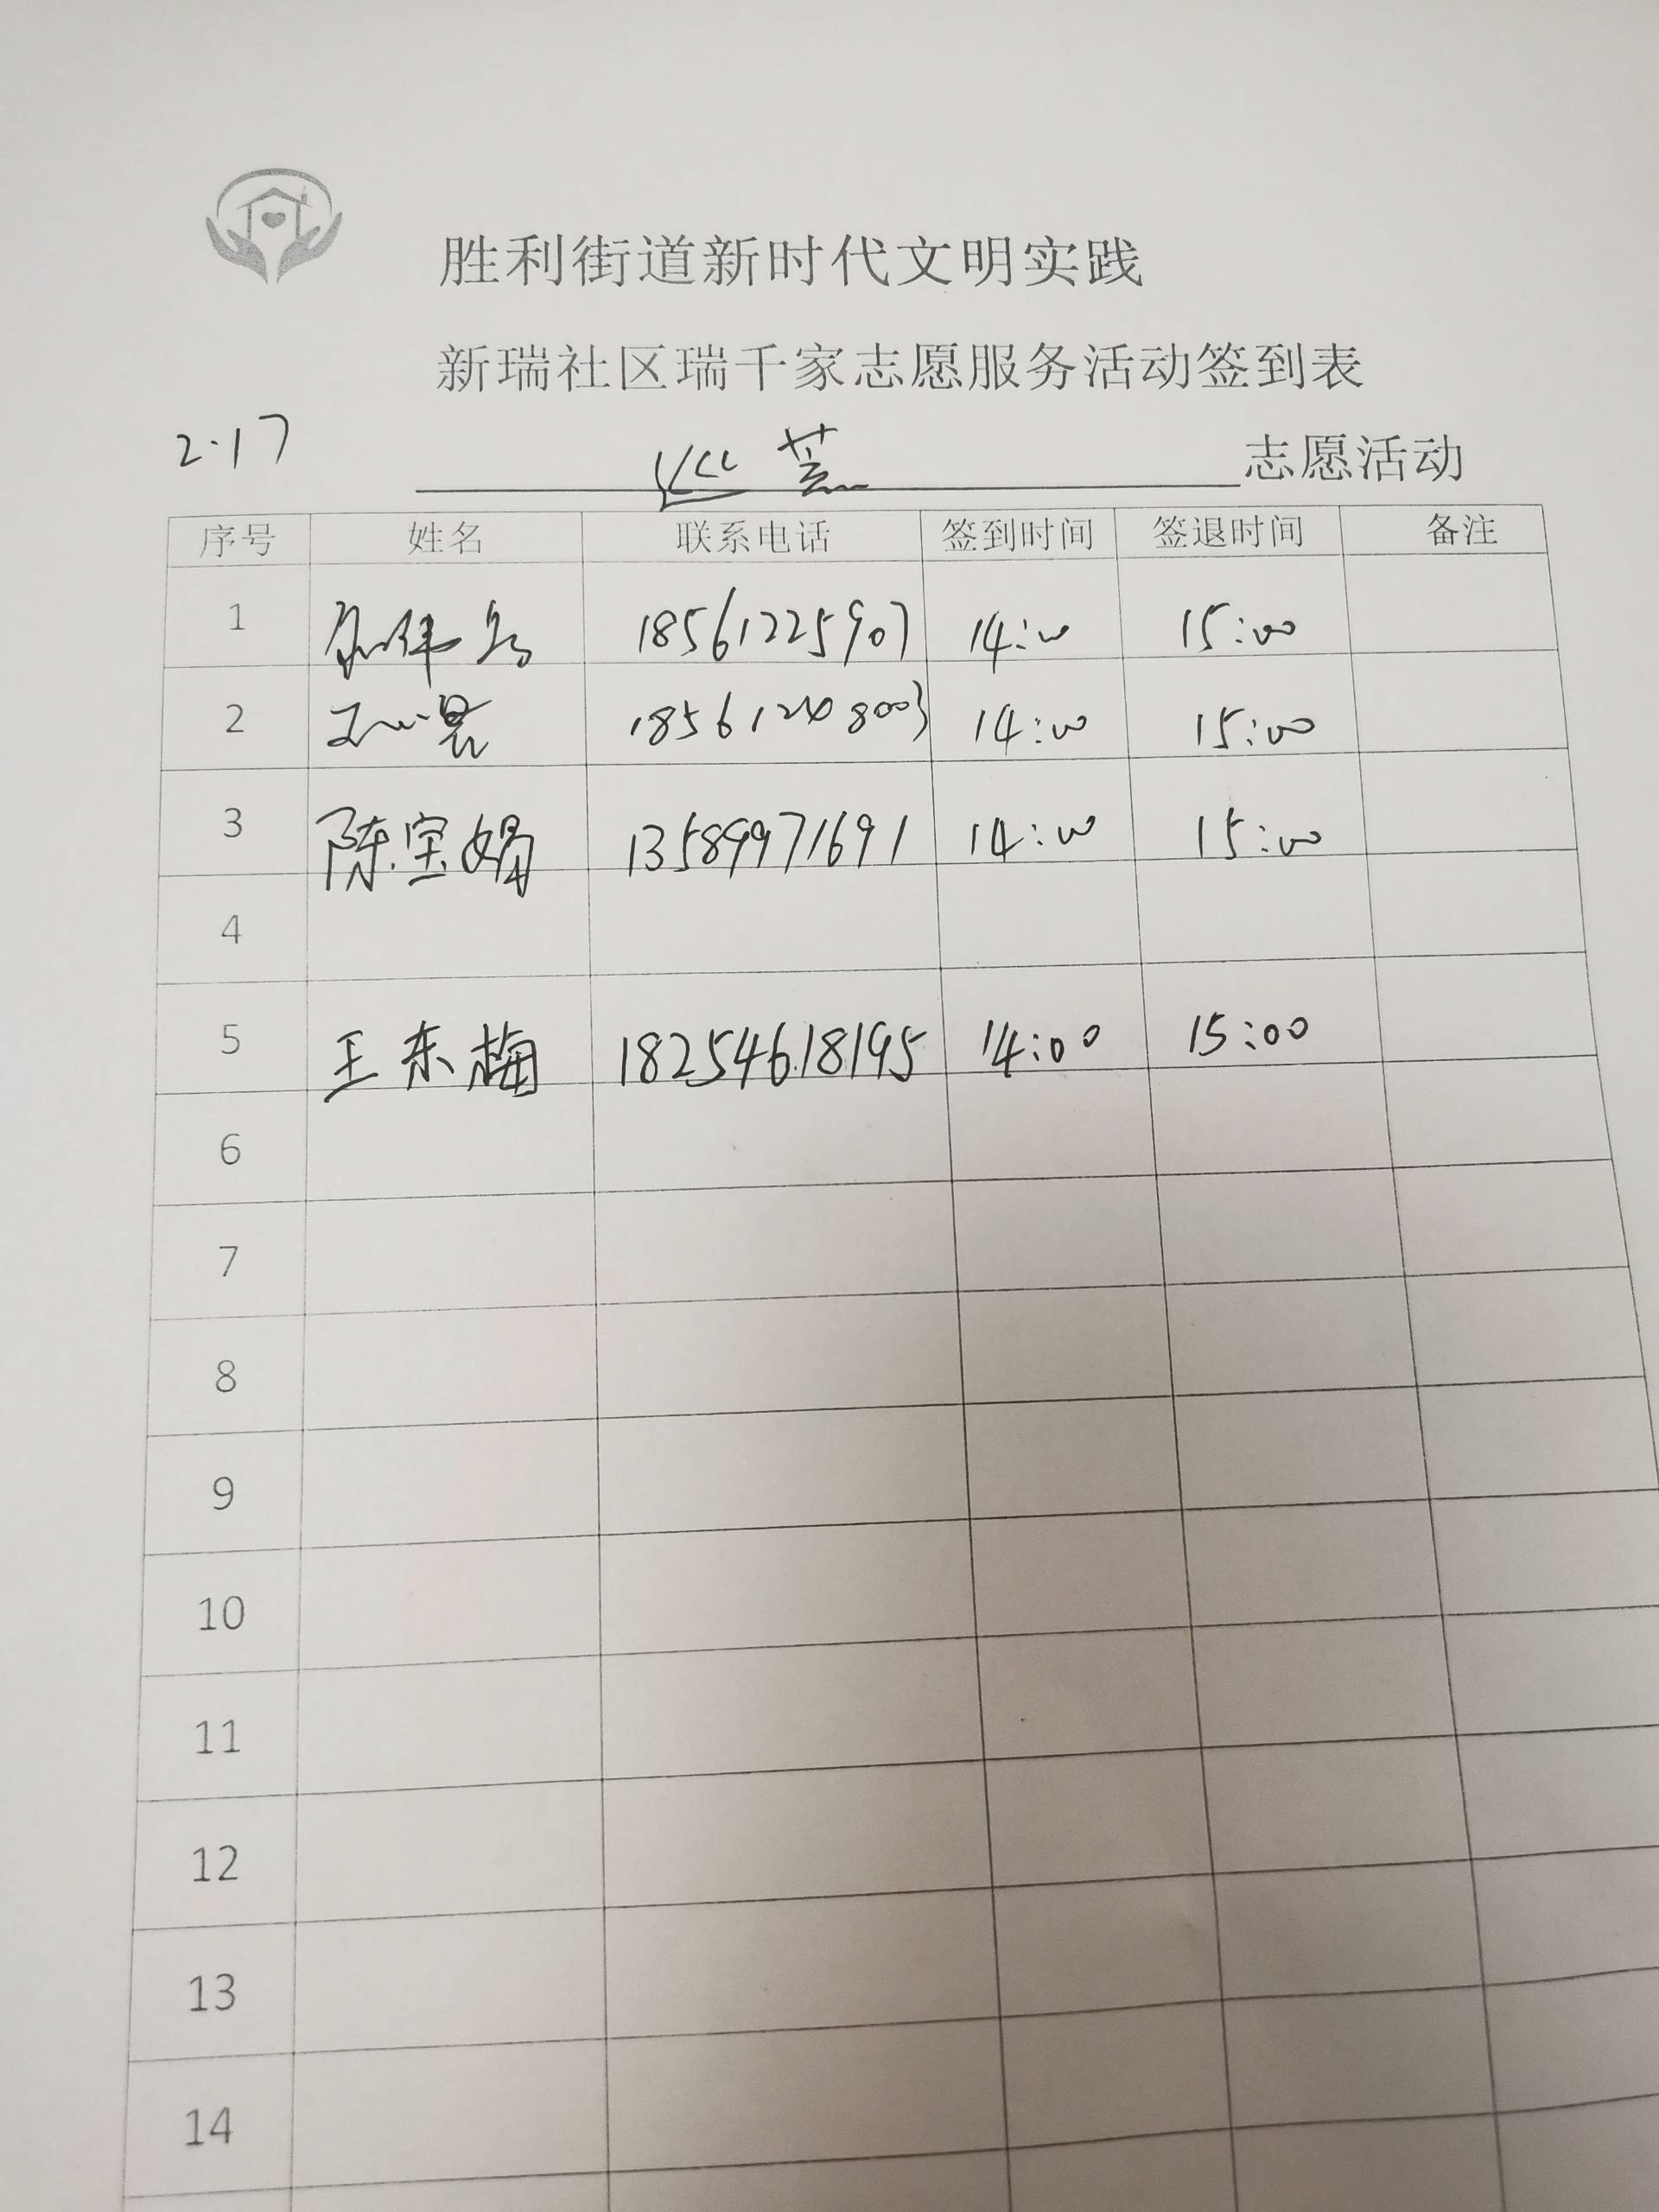 胜利街道新时代文明实践
新瑞社区瑞千家志愿服务活动签到表
2.17
巡 志愿活动
序号 姓名 联系电话 签到时间 签退时间 备注
1 18561225907 14:00 15:00
2 14:00 15:00
3 陈宝娟 13589971691 14:00 15:00
4
5 王东梅 18254618195 14:00 15:00
6
7
8
9
10
11
12
13
14